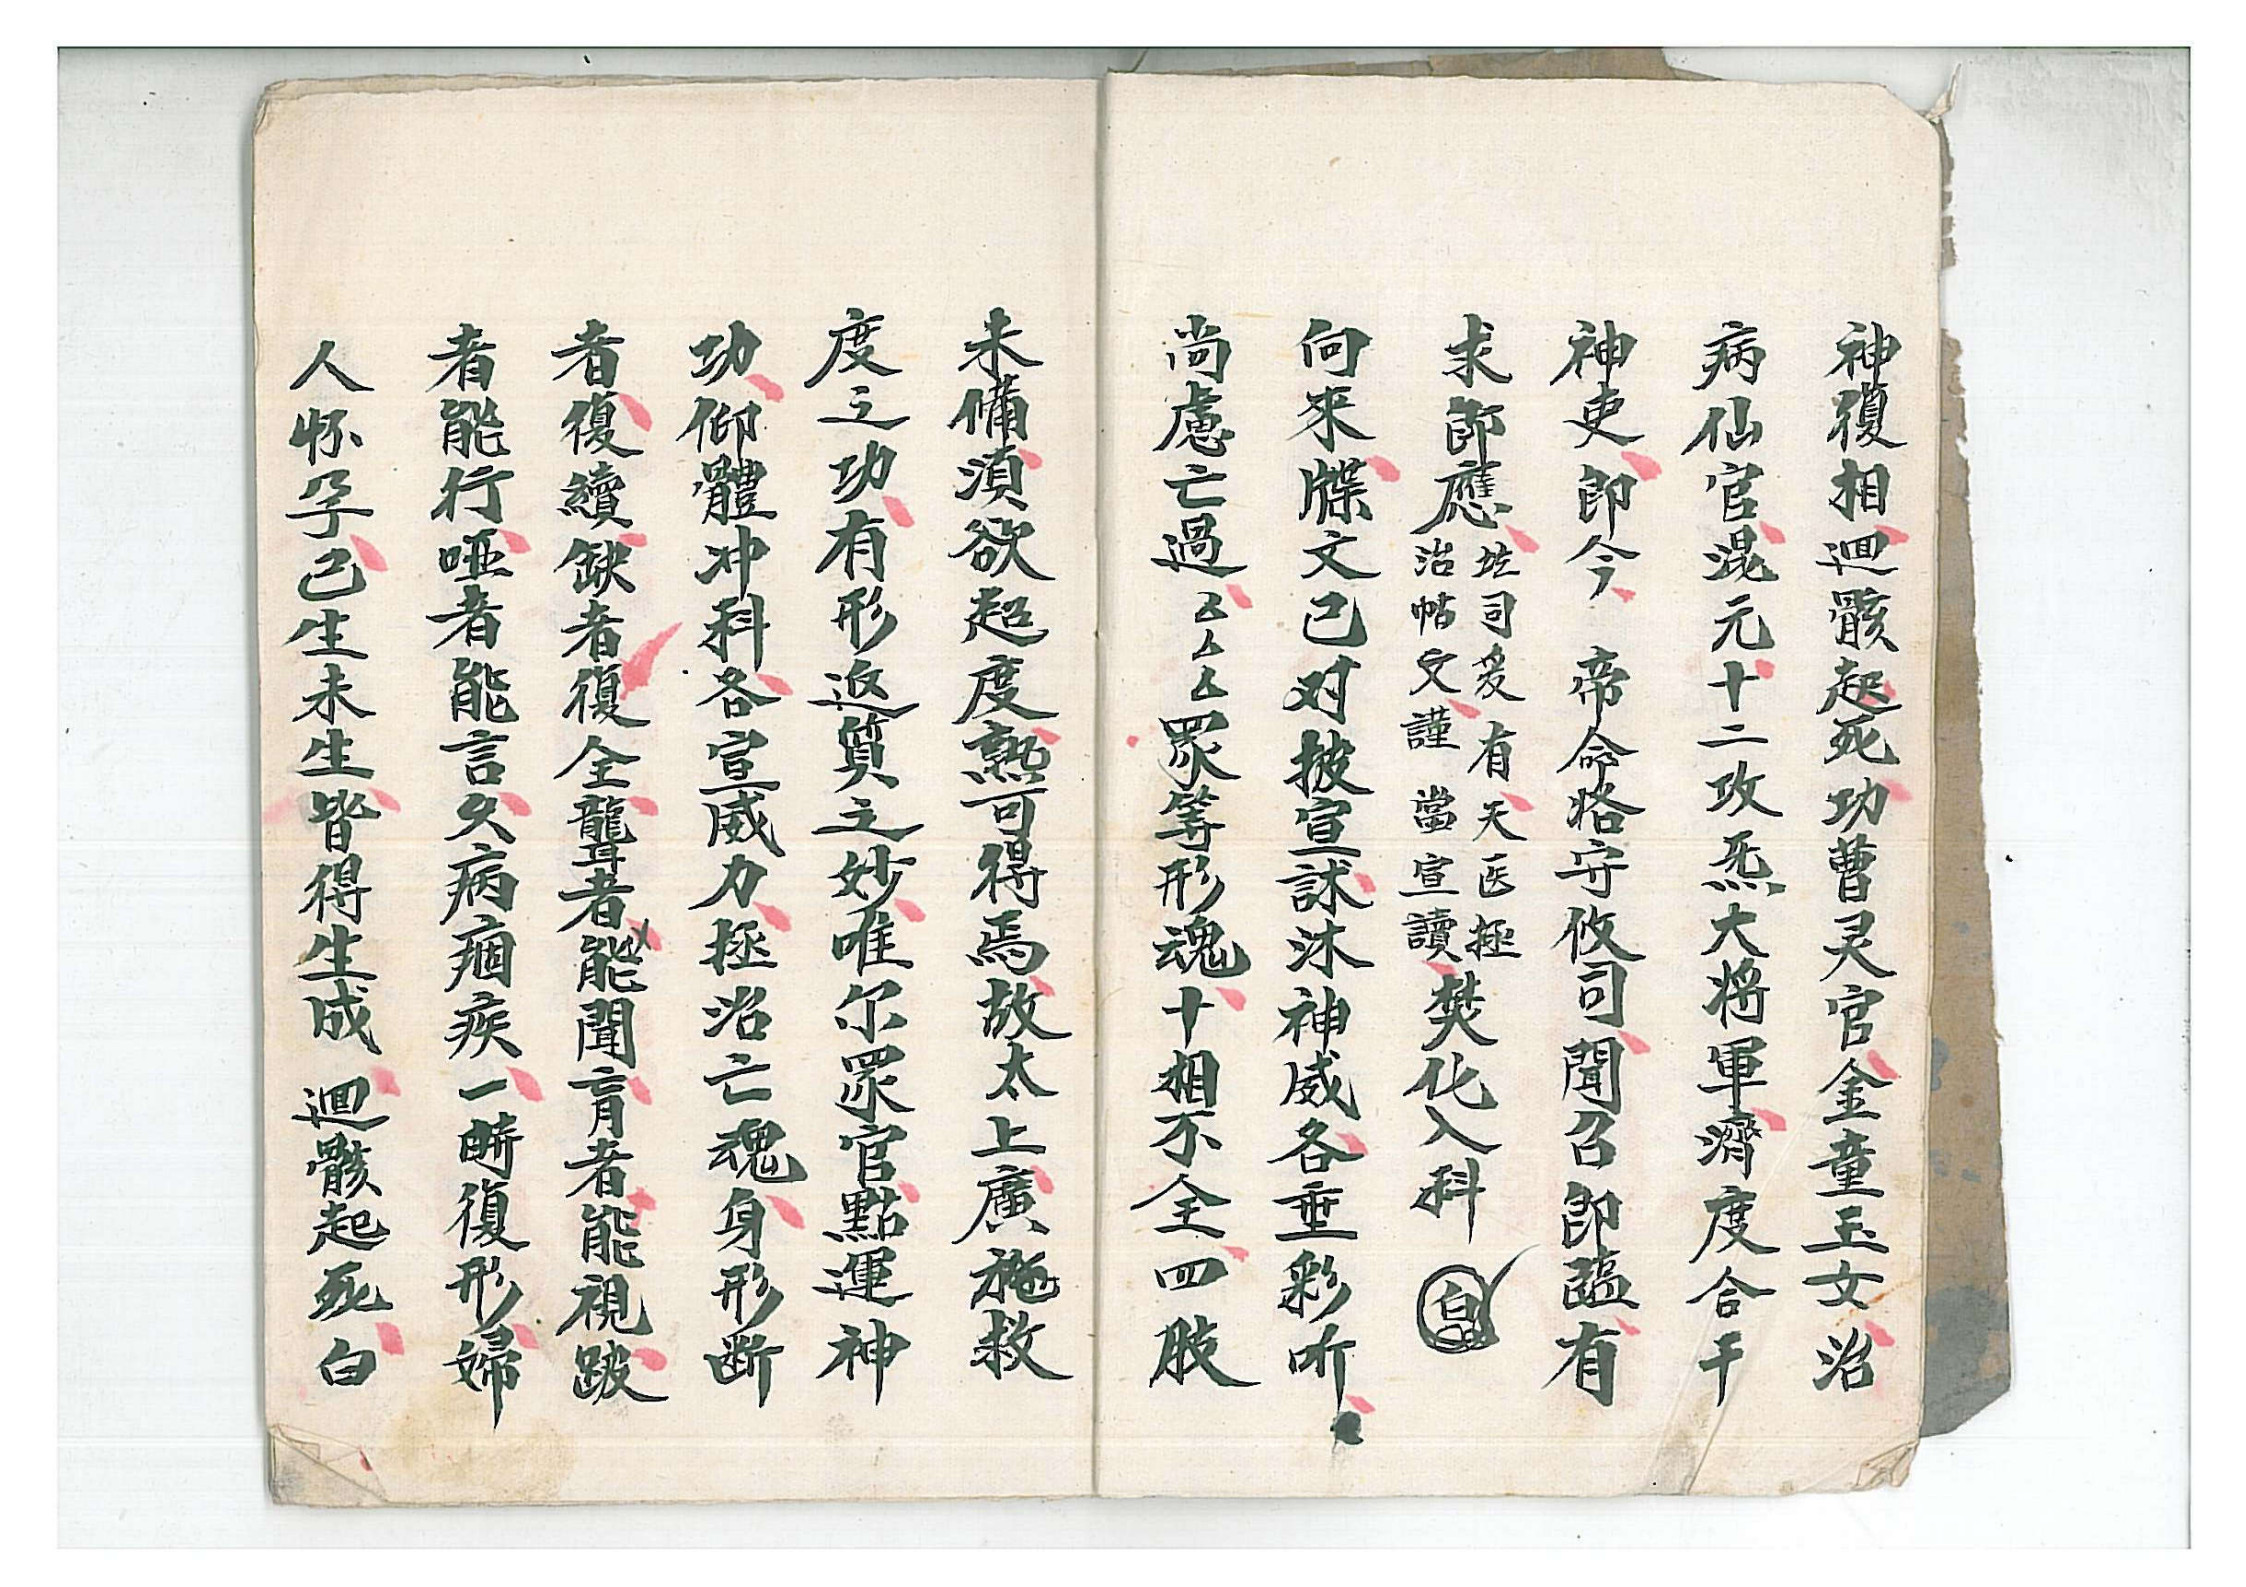 神復相迴骸起死功曹灵官金童玉女治
病仙官混元十二攻炁大将軍濟度合干
神吏即今帝命恪守攸司聞召即臨有
求即應
坛司爰有天医拯
治帖文謹當宣讀
焚化入科 白
向來牒文已对披宣詠沐神威各垂彩听
尚慮亡過厶厶厶厶眾等形魂十相不全四肢
未備湏欲起度㷱可得焉故太上廣施救
度之功有形返質之妙唯尔眾官點運神
功仰體冲科各宣威力拯治亡魂身形断
者復續缺者復全聾者能聞肓者能視跛
者能行哑者能言久病痼疾一時復形婦
人怀孕已生未生皆得生成迴骸起死白